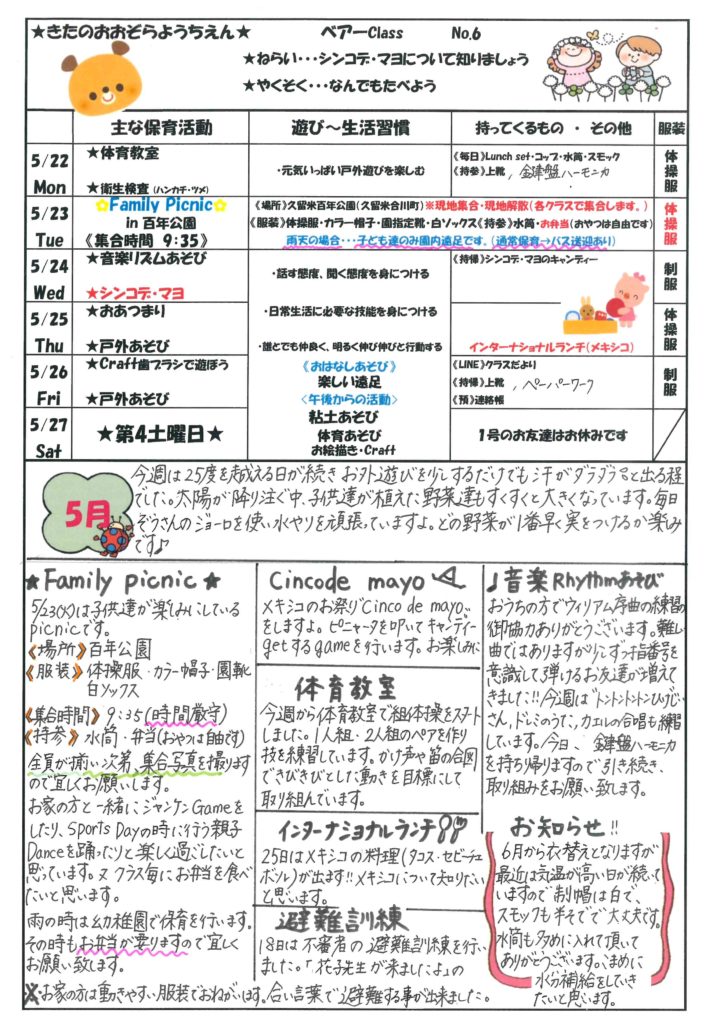 ★きたのおおぞらようちえん★ ベアーClass No.6
★ねらい・・・シンコデ・マヨについて知りましょう
★やくそく・・・なんでもたべよう
主な保育活動 遊び～生活習慣 持ってくるもの ・ その他 服装
5/22 Mon
★体育教室
★衛生検査 (ハンカチ・ツメ)
・元気いっぱい戸外遊びを楽しむ
《毎日》Lunch set・コップ・水筒・スモック
《持参》上靴, 鍵盤ハーモニカ
体操服
5/23 Tue
✿Family Picnic✿
in 百年公園
《集合時間 9:35》
《場所》久留米百年公園(久留米合川町)※現地集合・現地解散(各クラスで集合します。)
《服装》体操服・カラー帽子・園指定靴・白ソックス《持参》水筒・お弁当(おやつは自由です)
雨天の場合・・・子ども達のみ園内遠足です。(通常保育→バス送迎あり)
体操服
5/24 Wed
★音楽リズムあそび
★シンコデ・マヨ
・話す態度、聞く態度を身につける
《持帰》シンコデ・マヨのキャンディー
制服
5/25 Thu
★おあつまり
★戸外あそび
・日常生活に必要な技能を身につける
・誰とでも仲良く、明るく伸び伸びと行動する
インターナショナルランチ(メキシコ)
体操服
5/26 Fri
★Craft歯ブラシで遊ぼう
★戸外あそび
《おはなしあそび》
楽しい遠足
<午後からの活動>
《LINE》クラスだより
《持帰》上靴, ペーパーワーク
《預》連絡帳
制服
5/27 Sat
★第4土曜日★
粘土あそび
体育あそび
お絵描き・Craft
1号のお友達はお休みです
5月
今週は25度を越える日が続きお外遊びを少しするだけでも汗がダラダラと出る程
でした。太陽が降り注ぐ中、子供達が植えた野菜達もすくすくと大きくなっています。毎日
ぞうさんのジョーロを使い水やりを頑張っていますよ。どの野菜が1番早く実をつけるか楽しみ
です♪
★Family picnic★
5/23(火)は子供達が楽しみにしている
picnicです。
《場所》百年公園
《服装》体操服・カラー帽子・園靴
白ソックス
《集合時間》9:35(時間厳守)
《持参》水筒・弁当(おやつは自由です)
全員が揃い次第、集合写真を撮ります
ので宜しくお願いします。
お家の方と一緒にジャンケンGameを
したり、Sports Dayの時に行う親子
Danceを踊ったりと楽しく過ごしたいと
思っています。又クラス毎にお弁当を食べ
たいと思います。
雨の時は幼稚園で保育を行います。
その時もお弁当が要りますので宜しく
お願い致します。
※お家の方は動きやすい服装でおねがいします。
Cincode mayo
メキシコのお祭り"Cinco de mayo"
をしますよ。ピニャータを叩いてキャンディー
getするgameを行います。お楽しみに
体育教室
今週から体育教室で組体操をスタート
しました。1人組・2人組のペアを作り
技を練習しています。かけ声や笛の合図
できびきびとした動きを目標にして
取り組んでいます。
インターナショナルランチ!!
25日はメキシコの料理(タコス・セビーチェ
ボソレ)が出ます!!メキシコについて知りたいな
と思います。
避難訓練
18日は不審者の避難訓練を行い
ました。「花子先生が来ましたよ」の
合い言葉で避難する事が出来ました。
♩音楽Rhythmあそび
おうちの方でウィリアム序曲の練習の
御協力ありがとうございます。難しい
曲ではありますが少しずつ指番号を
意識して弾けるお友達が増えて
きました!!今週は"トントントントンひげじい
さん、ドレミのうた、カエルの合唱も練習
しています。今日、鍵盤ハーモニカ
を持ち帰りますので引き続き、
取り組みをお願い致します。
お知らせ!!
6月から衣替えとなりますが
最近は気温が高い日が続いて
いますので制帽は白で、
スモックも半そでで大丈夫です。
水筒も多めに入れて頂いて
ありがとうございます。こまめに
水分補給をしていき
たいと思います。